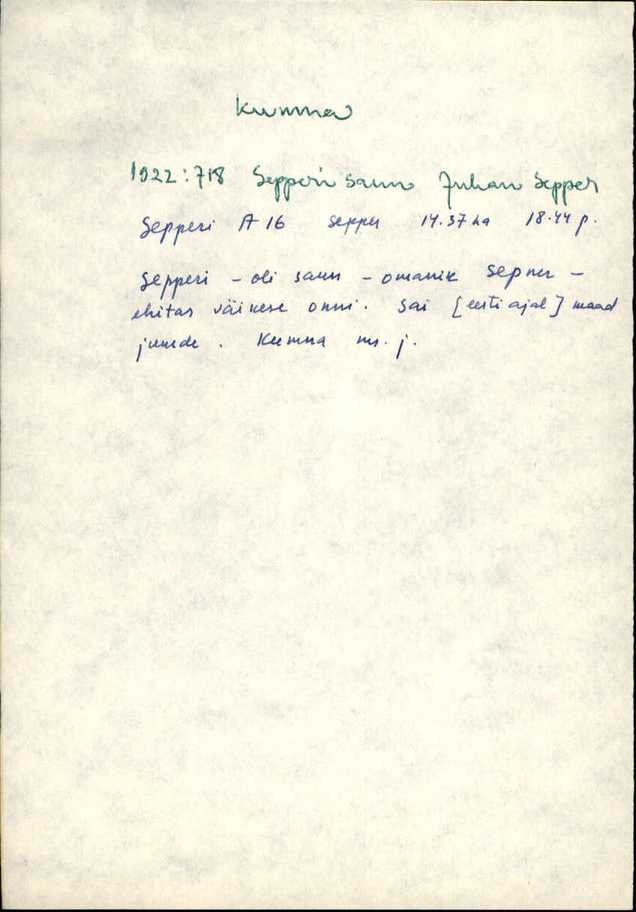 Kumna
1922:718 Sepperi saun Juhan Sepper
Sepperi A 16 Sepper 14.37 ha 18.44 p.
Sepperi - oli saun - omanik Sepner -
ehitas väikese onni. Sai [eesti ajal] maad
juurde. Kumna ms. j.